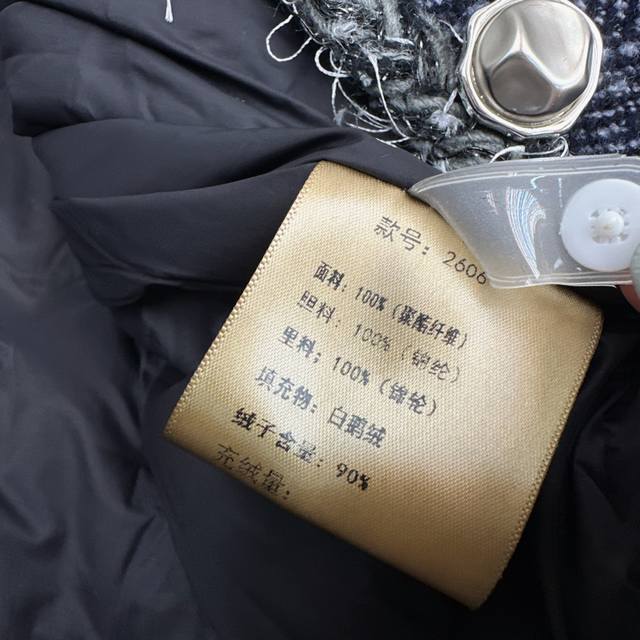 款号：2606
面料：100%（聚酯纤维）
胆料：100%（锦纶）
里料：100%（锦纶）
填充物：白鹅绒
绒子含量：90%
充绒量：